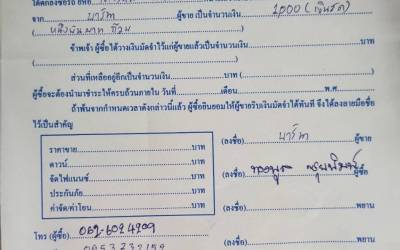 ได้ตกลงซื้อรถ ยี่ห้อ
จาก บาร์ท ผู้ขาย เป็นจำนวนเงิน 1,000 (เงินสด)
( หนึ่งพันบาท ถ้วน ) บาท
ข้าพเจ้า ผู้ซื้อ ได้วางเงินมัดจำไว้แก่ผู้ขายแล้วเป็นจำนวนเงิน
( ) บาท
ส่วนที่เหลืออยู่อีกเป็นจำนวนเงิน บาท
ผู้ซื้อจะต้องนำมาชำระให้ครบถ้วนภายใน วันที่ เดือน พ.ศ.
ถ้าพ้นจากกำหนดเวลาดังกล่าวนี้แล้ว ผู้ซื้อยินยอมให้ผู้ขายริบเงินมัดจำได้ทันที จึงได้ลงลายมือชื่อ
ไว้เป็นสำคัญ
ราคาขาย บาท
ดาวน์ บาท
จัดไฟแนนซ์ บาท
ประกันภัย บาท
ค่าจัด/ค่าโอน บาท
(ลงชื่อ) บาร์ท ผู้ขาย
(ลงชื่อ) ผู้ซื้อ
(ลงชื่อ) พยาน
(ลงชื่อ) พยาน
โทร (ผู้ซื้อ) 062-6024209